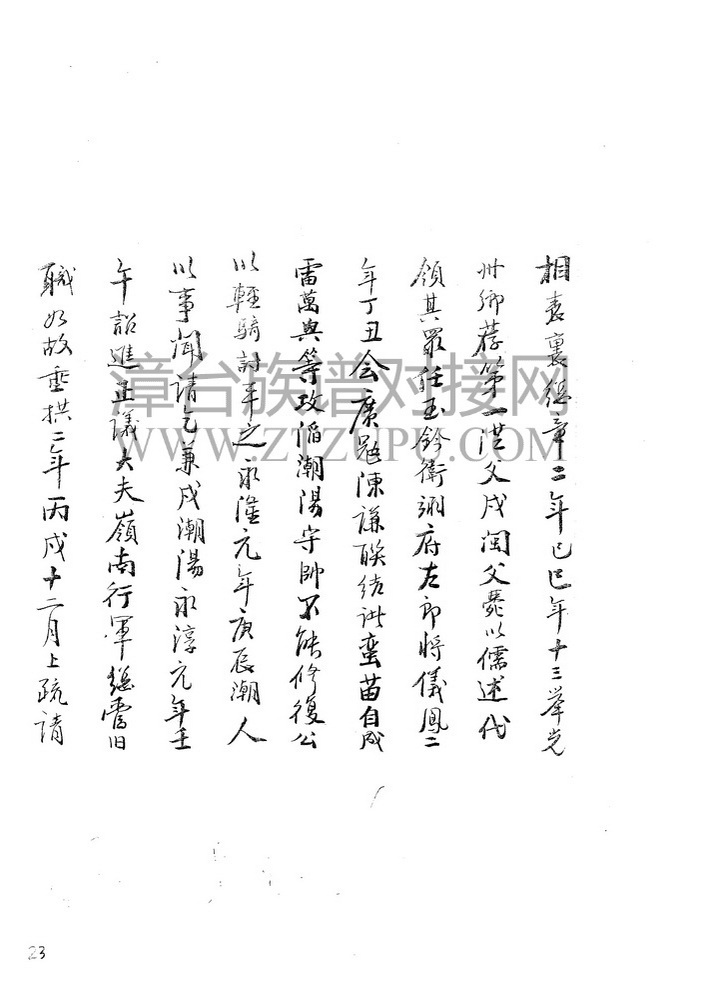 相表裏總章二年己巳年十三舉光
州鄉荐第一從父戍闽父薨以儒述代
領其眾任玉鈐衛诩府左郎將儀鳳二
年丁丑会廣冦陳謙联结洪蛮苗自成
雷萬與等攻陷潮陽守帥不能修復公
以輕騎討平之永淮元年庚辰潮人
以事闻请乞兼戍潮陽永淳元年壬
午詔進正議大夫嶺南行軍總管旧
職如故垂拱二年丙戌十二月上疏请
漳台族谱对接网
WWW.ZTZUPU.COM
23